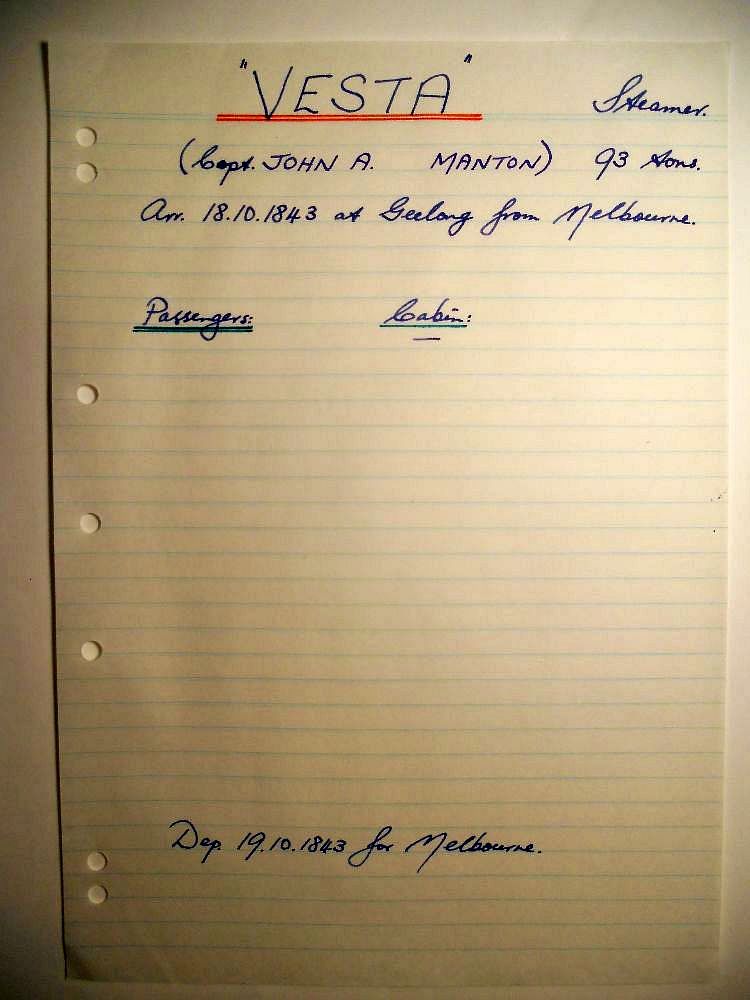 "VESTA" Steamer.
(Capt. JOHN A. MANTON) 93 tons.
Arr. 18.10.1843 at Geelong from Melbourne.
Passengers: Cabin:
—
Dep. 19.10.1843 for Melbourne.